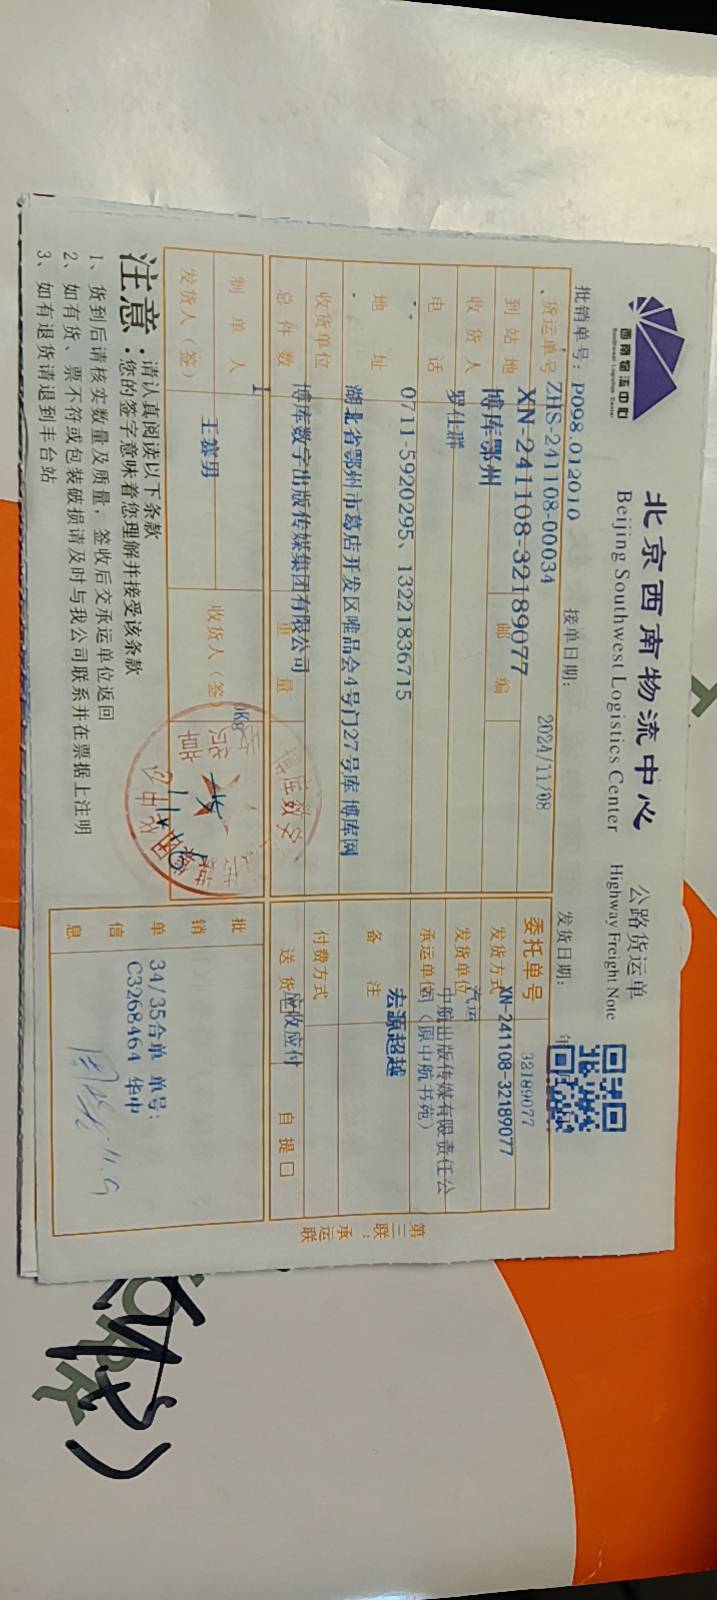 西南物流中心
Southwest Logistics Center
北京西南物流中心 公路货运单
Beijing Southwest Logistics Center Highway Freight Note
批销单号: P098.012010 接单日期: 2024/11/08 发货日期:
货运单号 ZHS-241108-00034
XN-241108-32189077
委托单号 32189077
XN-241108-32189077
到站地 博库鄂州 邮编
发货方式 汽运
收货人 罗仕群
发货单位 中航出版传媒有限责任公司(原中航书苑)
电话 0711-5920295、13221836715
承运单位 宏源超越
地址 湖北省鄂州市葛店开发区唯品会4号门27号库 博库网
备注
收货单位 博库数字出版传媒集团有限公司
付费方式 应收应付
总件数 1 重量
送货 自提口
制单人 王赛男
收货人(签)
发货人(签)
批销单信息
34/35合单 单号:
C3268464 华中
第三联:承运联
注意:请认真阅读以下条款
您的签字意味着您理解并接受该条款
1、货到后请核实数量及质量,签收后交承运单位返回
2、如有货、票不符或包装破损请及时与我公司联系并在票据上注明
3、如有退货请退到丰台站